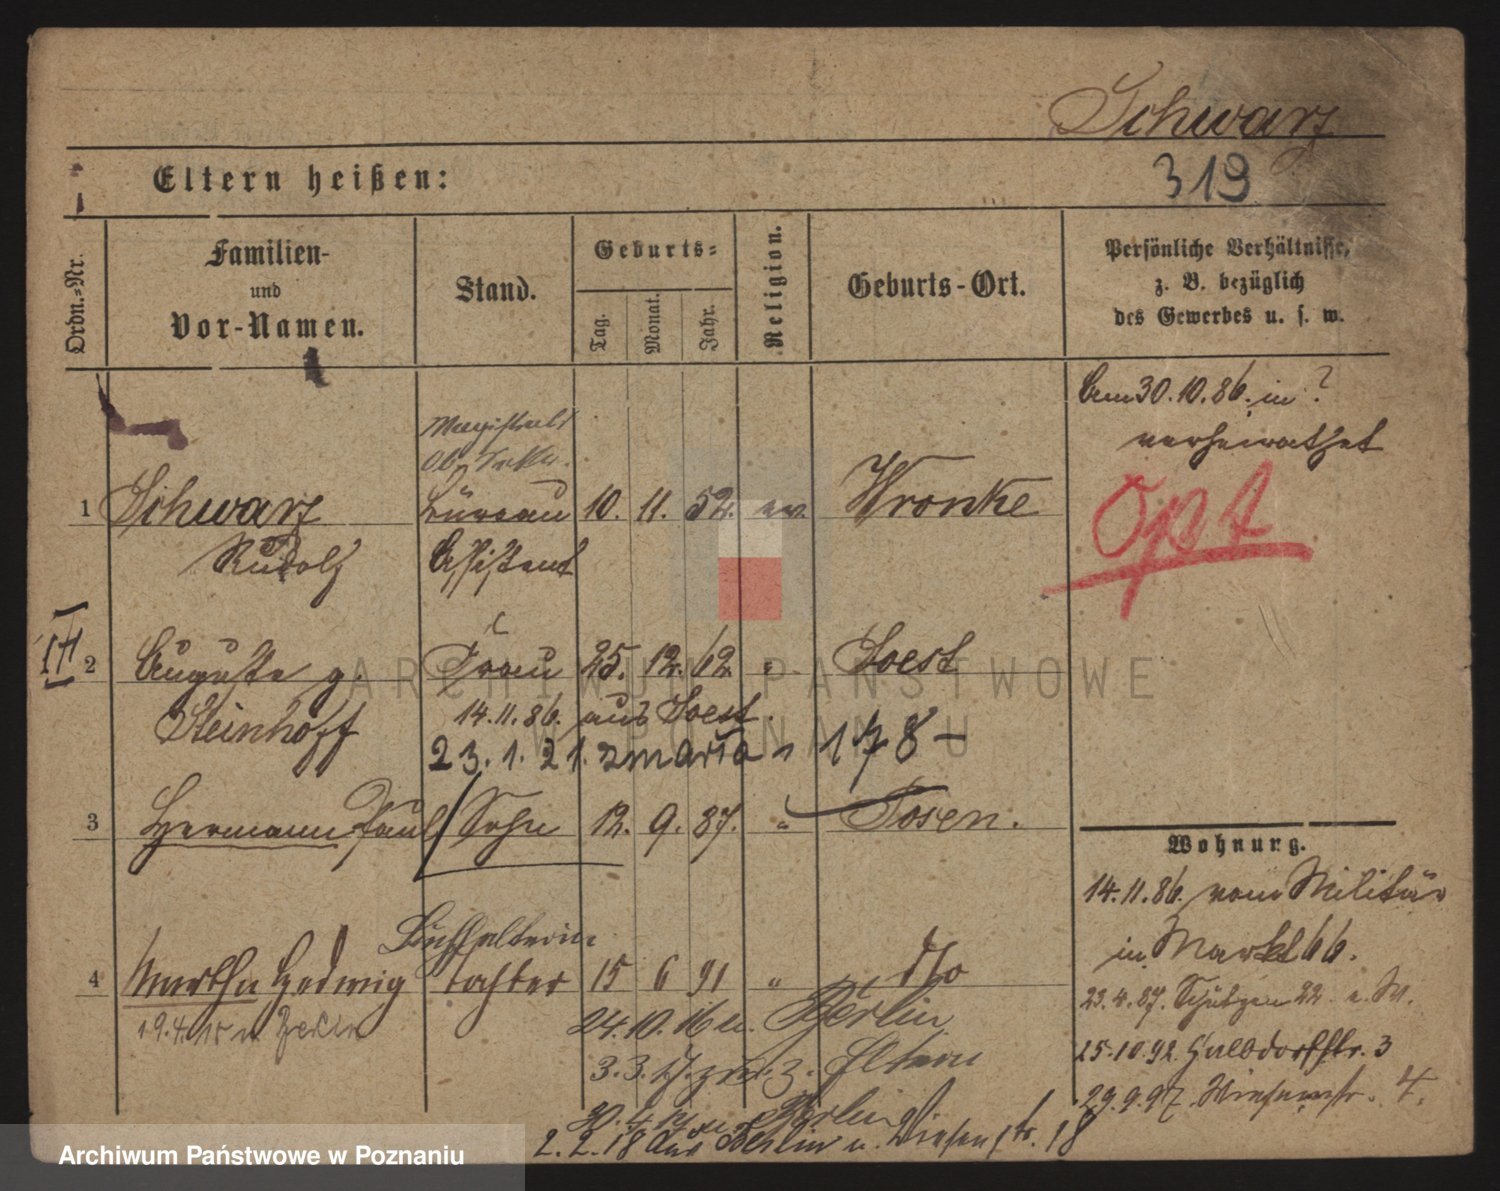 Schwarz
319
Eltern heißen:
Ordn.-Nr.
Familien-
und
Vor-Namen.
Stand.
Geburts-
Tag.
Monat.
Jahr.
Religion.
Geburts-Ort.
Persönliche Verhältnisse,
z. B. bezüglich
des Gewerbes u. s. w.
Am 30.10.86. in ?
verheirathet
Magistrats
Ob. Sekr.
1 Schwarz Büreau 10. 11. 52. ev. Wronke
Rudolf Assistent
Opt
2 Auguste g. Frau 25. 12. 62. " Soest
Steinhoff 14.11.86. aus Soest.
23.1.21. 178-
3 Hermann Paul Sohn 12. 9. 87. " Posen.
Wohnung.
14.11.86. vom Militär
in Markt 66.
23.4.87. Schützen 22. a. W.
25.10.92. Halbdorfstr. 3
29.9.97. Wiesenstr. 4.
Buchhalterin
4 Martha Hedwig Tochter 15 6 91 " dto
19.4.15 n.
24.10.16 n. Berlin
3.3.17. zur. z. Eltern
Berlin
2.2.18 aus Berlin n. Wiesenstr. 18
ARCHIWUM PAŃSTWOWE
W POZNANIU
Archiwum Państwowe w Poznaniu